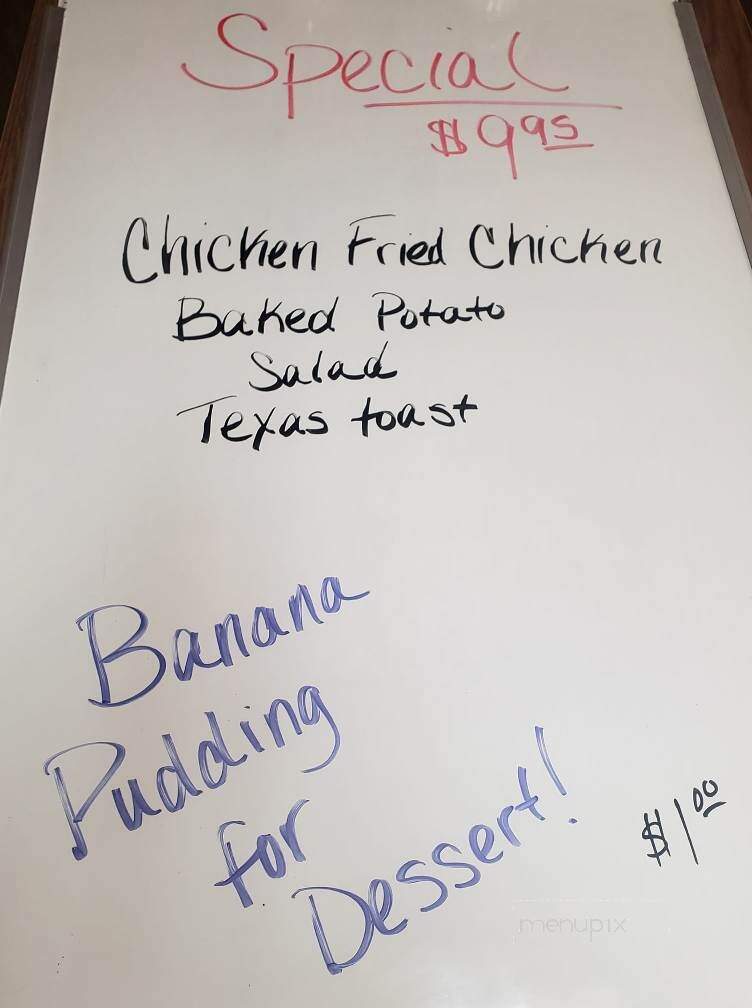 Special
$9.95
Chicken Fried Chicken
Baked Potato
Salad
Texas toast
Banana
Pudding
for
Dessert!
$1.00
menupix